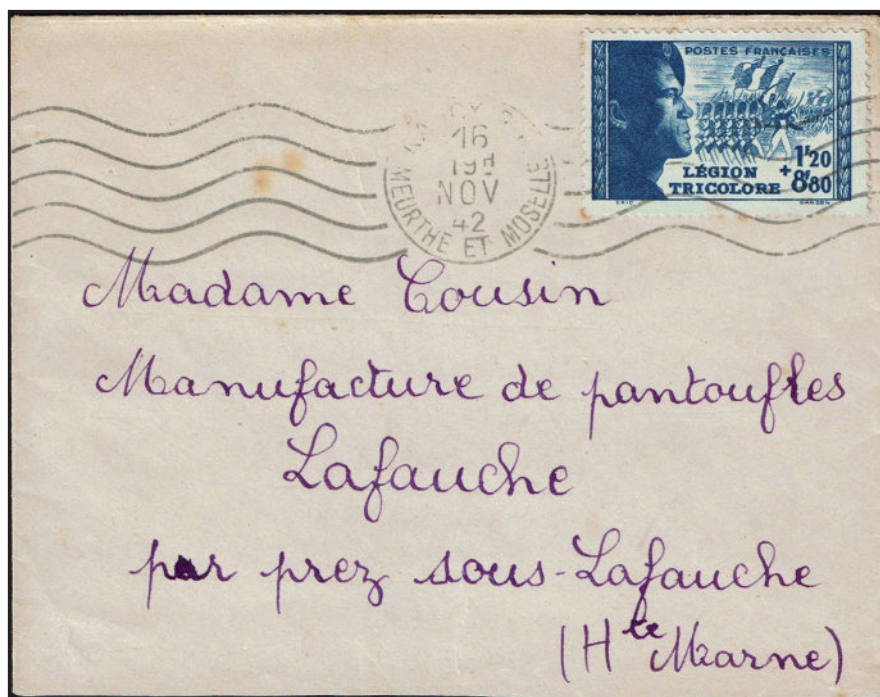 POSTES FRANÇAISES
1f20
+8f80
LÉGION
TRICOLORE
16
19H
NOV
42
MEURTHE ET MOSELLE
Madame Cousin
Manufacture de pantoufles
Lafauche
par prez sous-Lafauche
(Hte Marne)